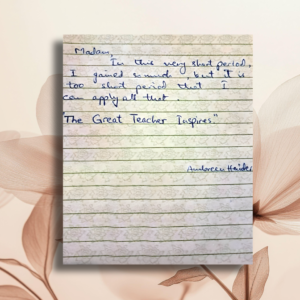 Madam,
In this very short period,
I gained so much, but it is
too short period that I
can apply all that.
The Great Teacher Inspires"
Ambreen Haider